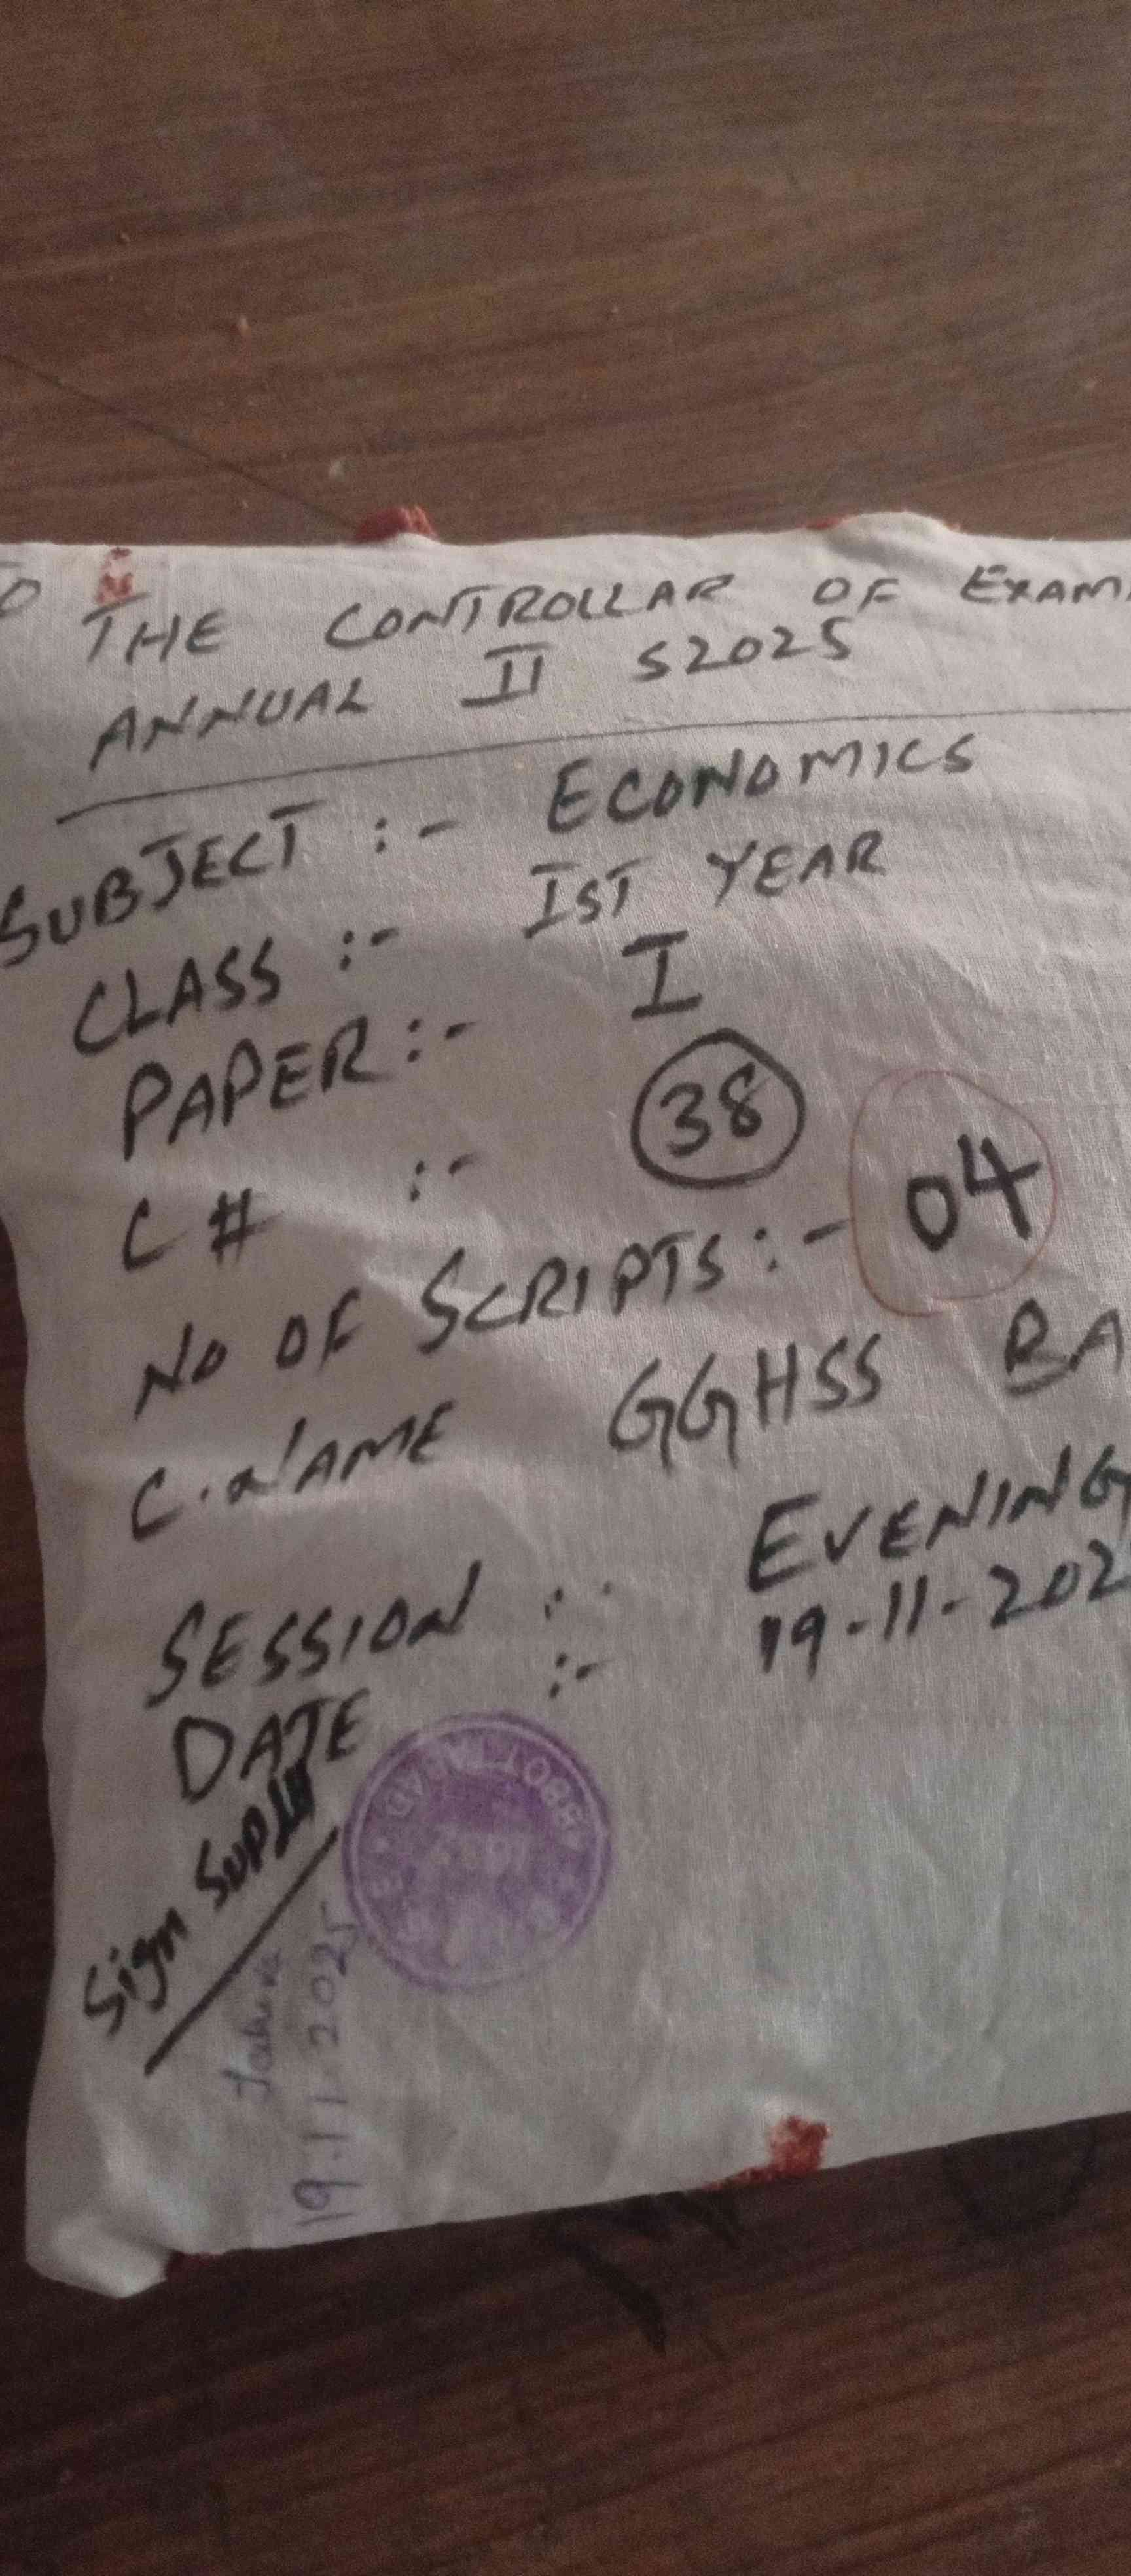 TO
THE CONTROLLAR OF EXAM
ANNUAL II S2025
SUBJECT :- ECONOMICS
CLASS :- IST YEAR
PAPER :- I
C # :- 38
NO OF SCRIPTS :- 04
C.NAME GGHSS BA
SESSION :- EVENING
DATE :- 19-11-202
Sign Supdt
19.11.2025
ABBOTTABAD